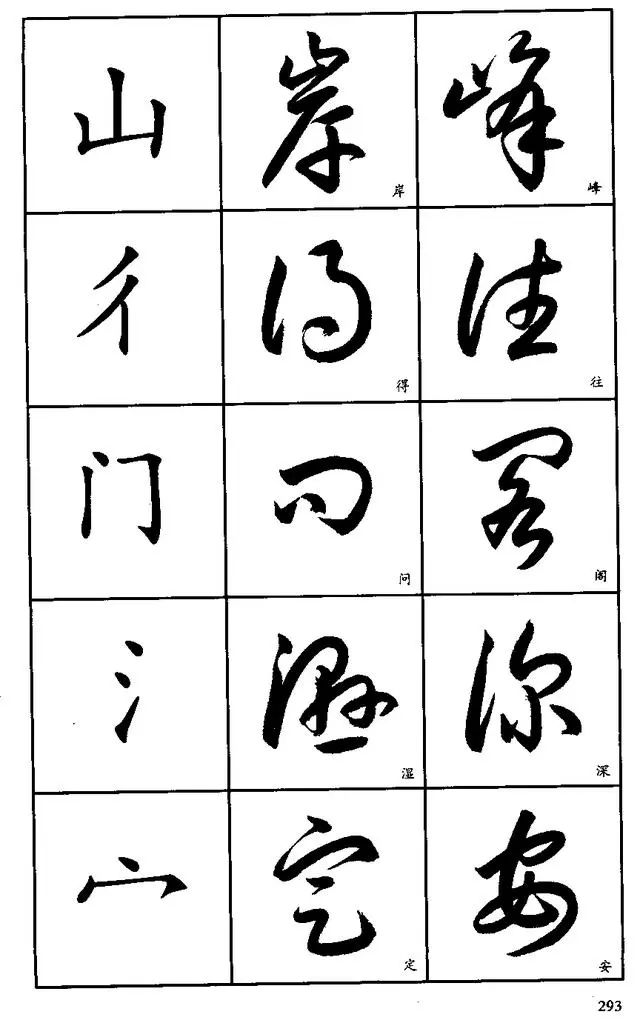 山 岸 岸 峰 峰
彳 得 得 往 往
门 问 问 阁 阁
氵 湿 湿 深 深
宀 定 定 安 安
293